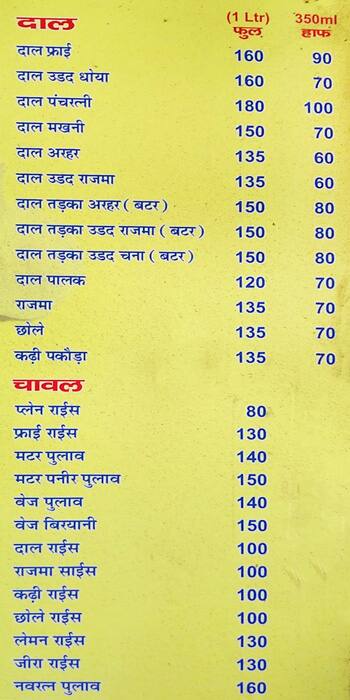 दाल (1 Ltr) फुल 350ml हाफ
दाल फ्राई 160 90
दाल उडद धोया 160 70
दाल पंचरत्नी 180 100
दाल मखनी 150 70
दाल अरहर 135 60
दाल उडद राजमा 135 60
दाल तड़का अरहर ( बटर ) 150 80
दाल तड़का उडद राजमा ( बटर ) 150 80
दाल तड़का उडद चना ( बटर ) 150 80
दाल पालक 120 70
राजमा 135 70
छोले 135 70
कढ़ी पकौड़ा 135 70
चावल
प्लेन राईस 80
फ्राई राईस 130
मटर पुलाव 140
मटर पनीर पुलाव 150
वेज पुलाव 140
वेज बिरयानी 150
दाल राईस 100
राजमा साईस 100
कढ़ी राईस 100
छोले राईस 100
लेमन राईस 130
जीरा राईस 130
नवरत्न पुलाव 160